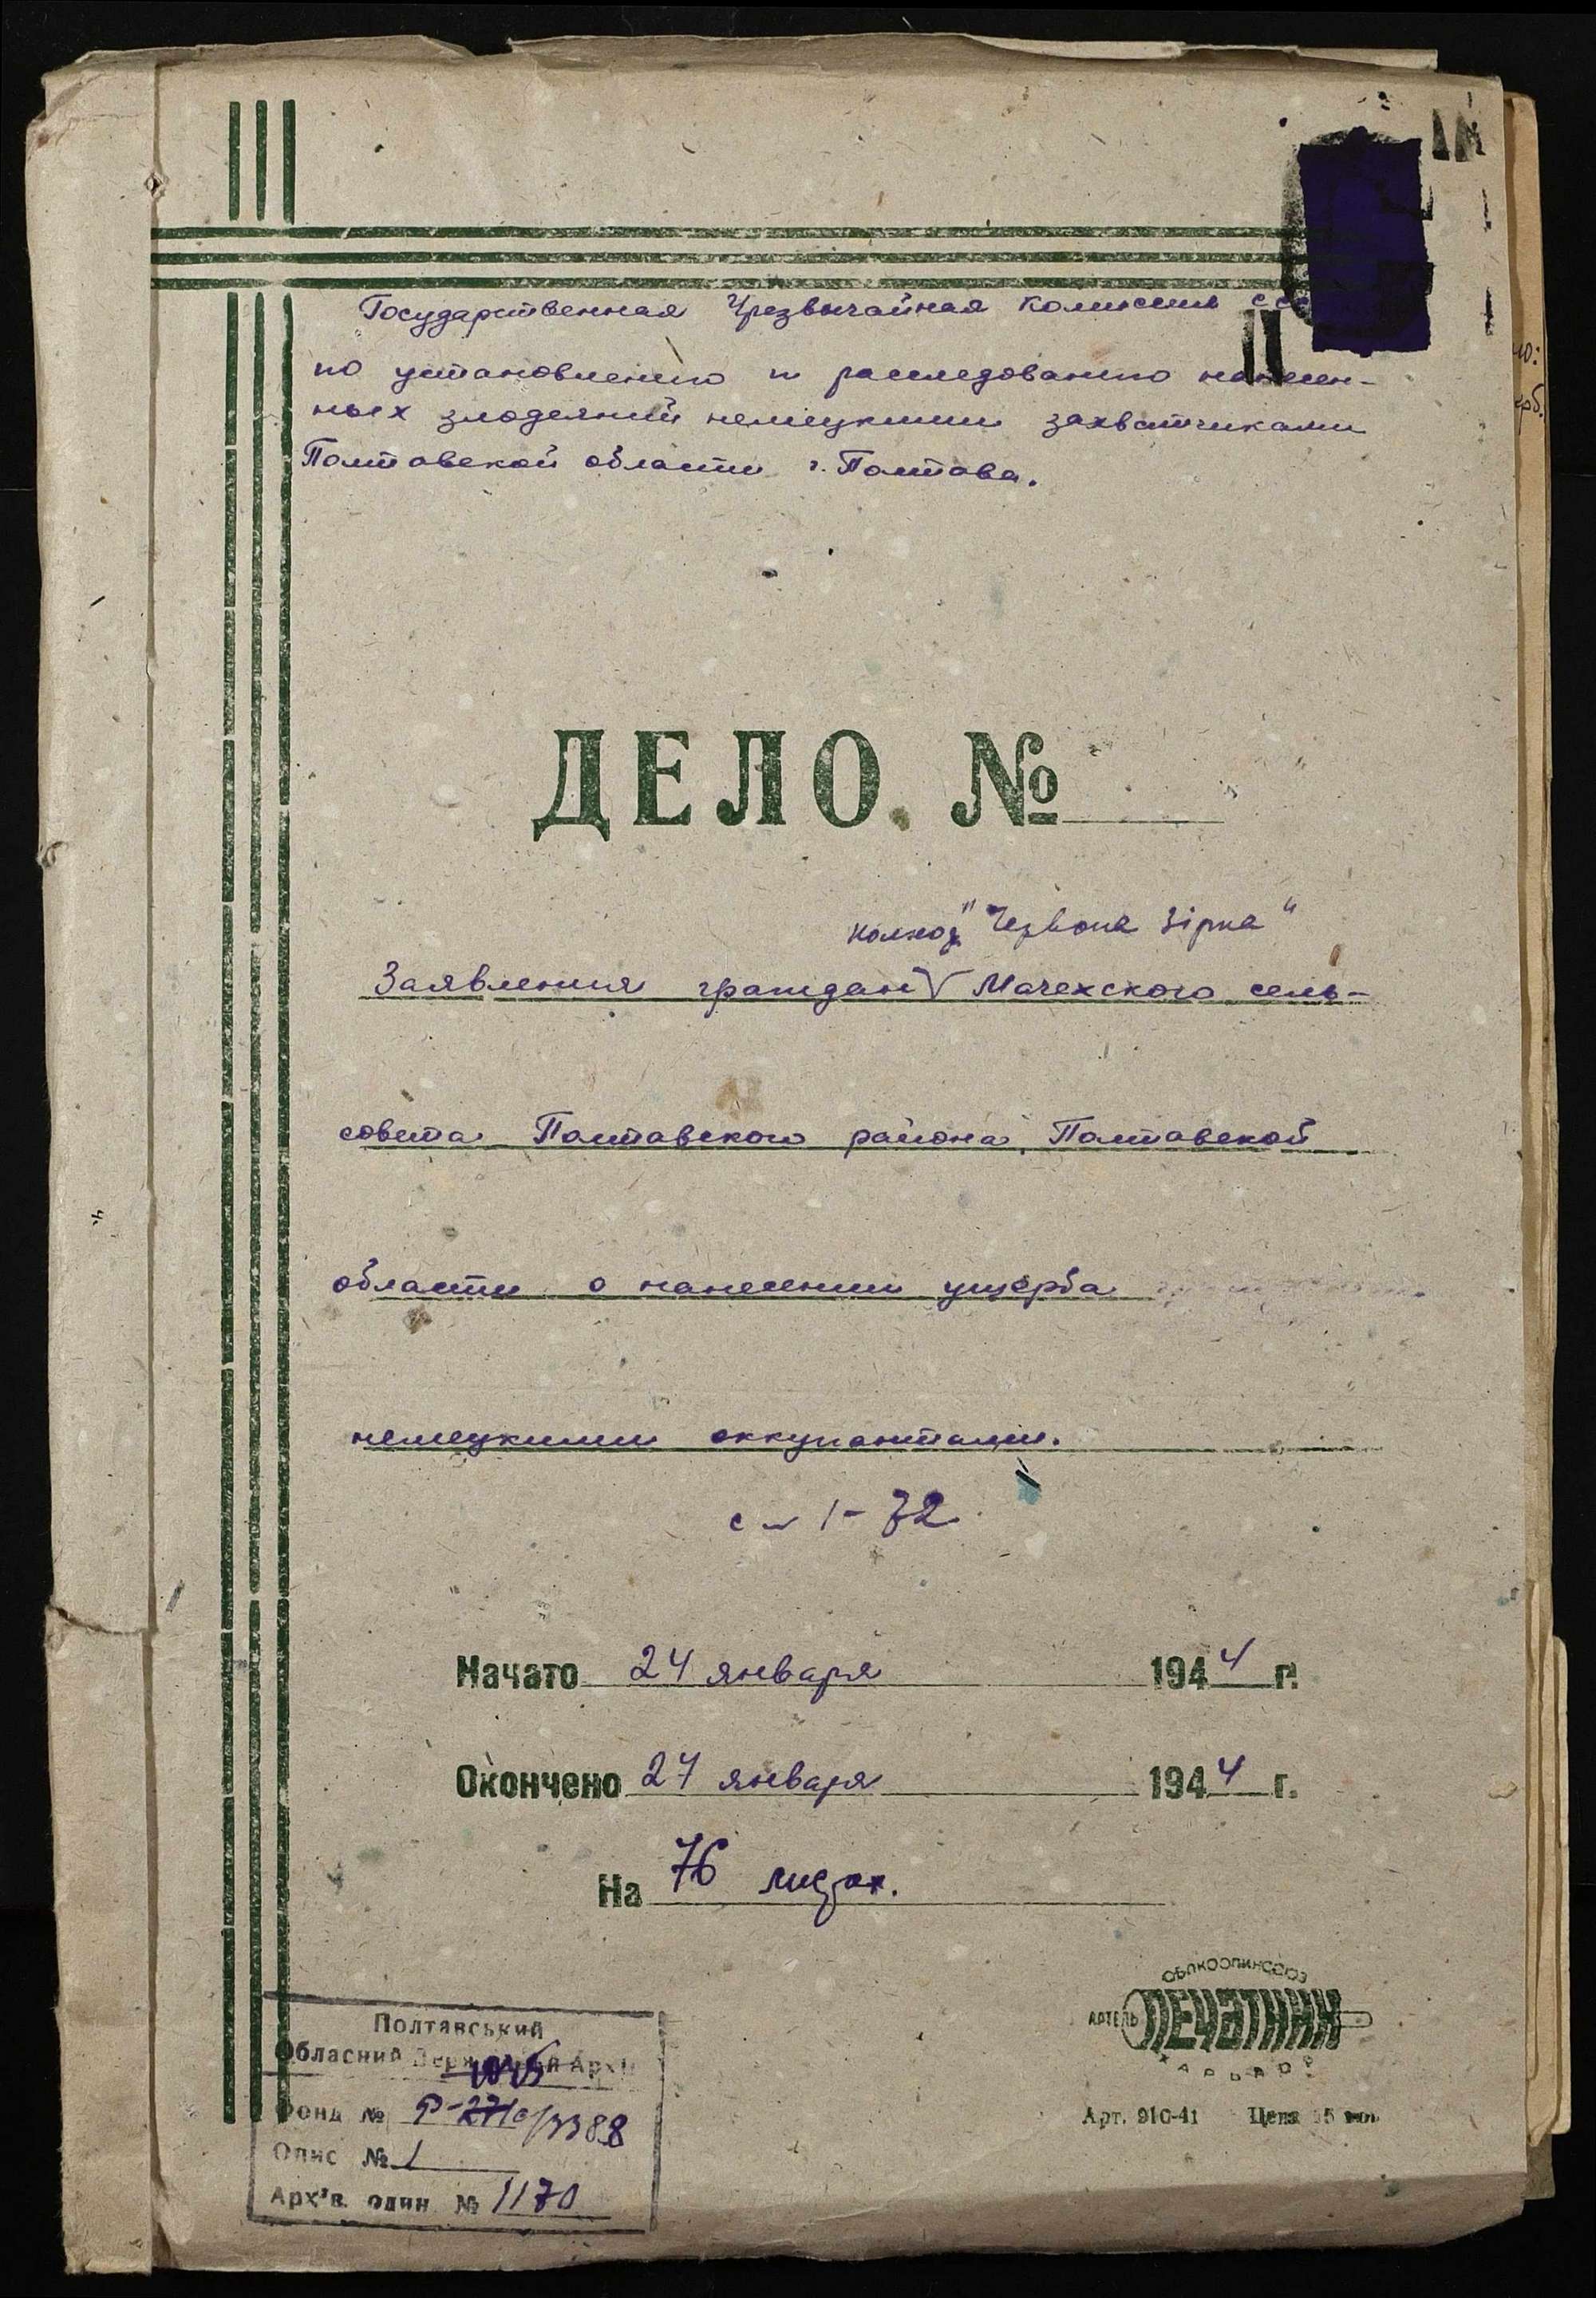 Государственная Чрезвычайная Комиссия ссс
по установлению и расследованию нанесен-
ных злодеяний немецкими захватчиками
Полтавской области г. Полтава.
ДЕЛО №
колхоз "Червона Зірка"
Заявления граждан V Мачехского сель-
совета Полтавского района, Полтавской
области о нанесении ущерба
немецкими оккупантами.
1-72
Начато 24 января 1944 г.
Окончено 27 января 1944 г.
На 76 листах.
ОБЛКООПИНСОЮЗ
АРТЕЛЬ ПЕЧАТНИК
ХАРЬКОВ
Арт. 910-41 Цена 15 коп.
Полтавський
Обласний Державний Архів
Фонд № Р-3388
Опис № 1
Арх'в. один. № 1170